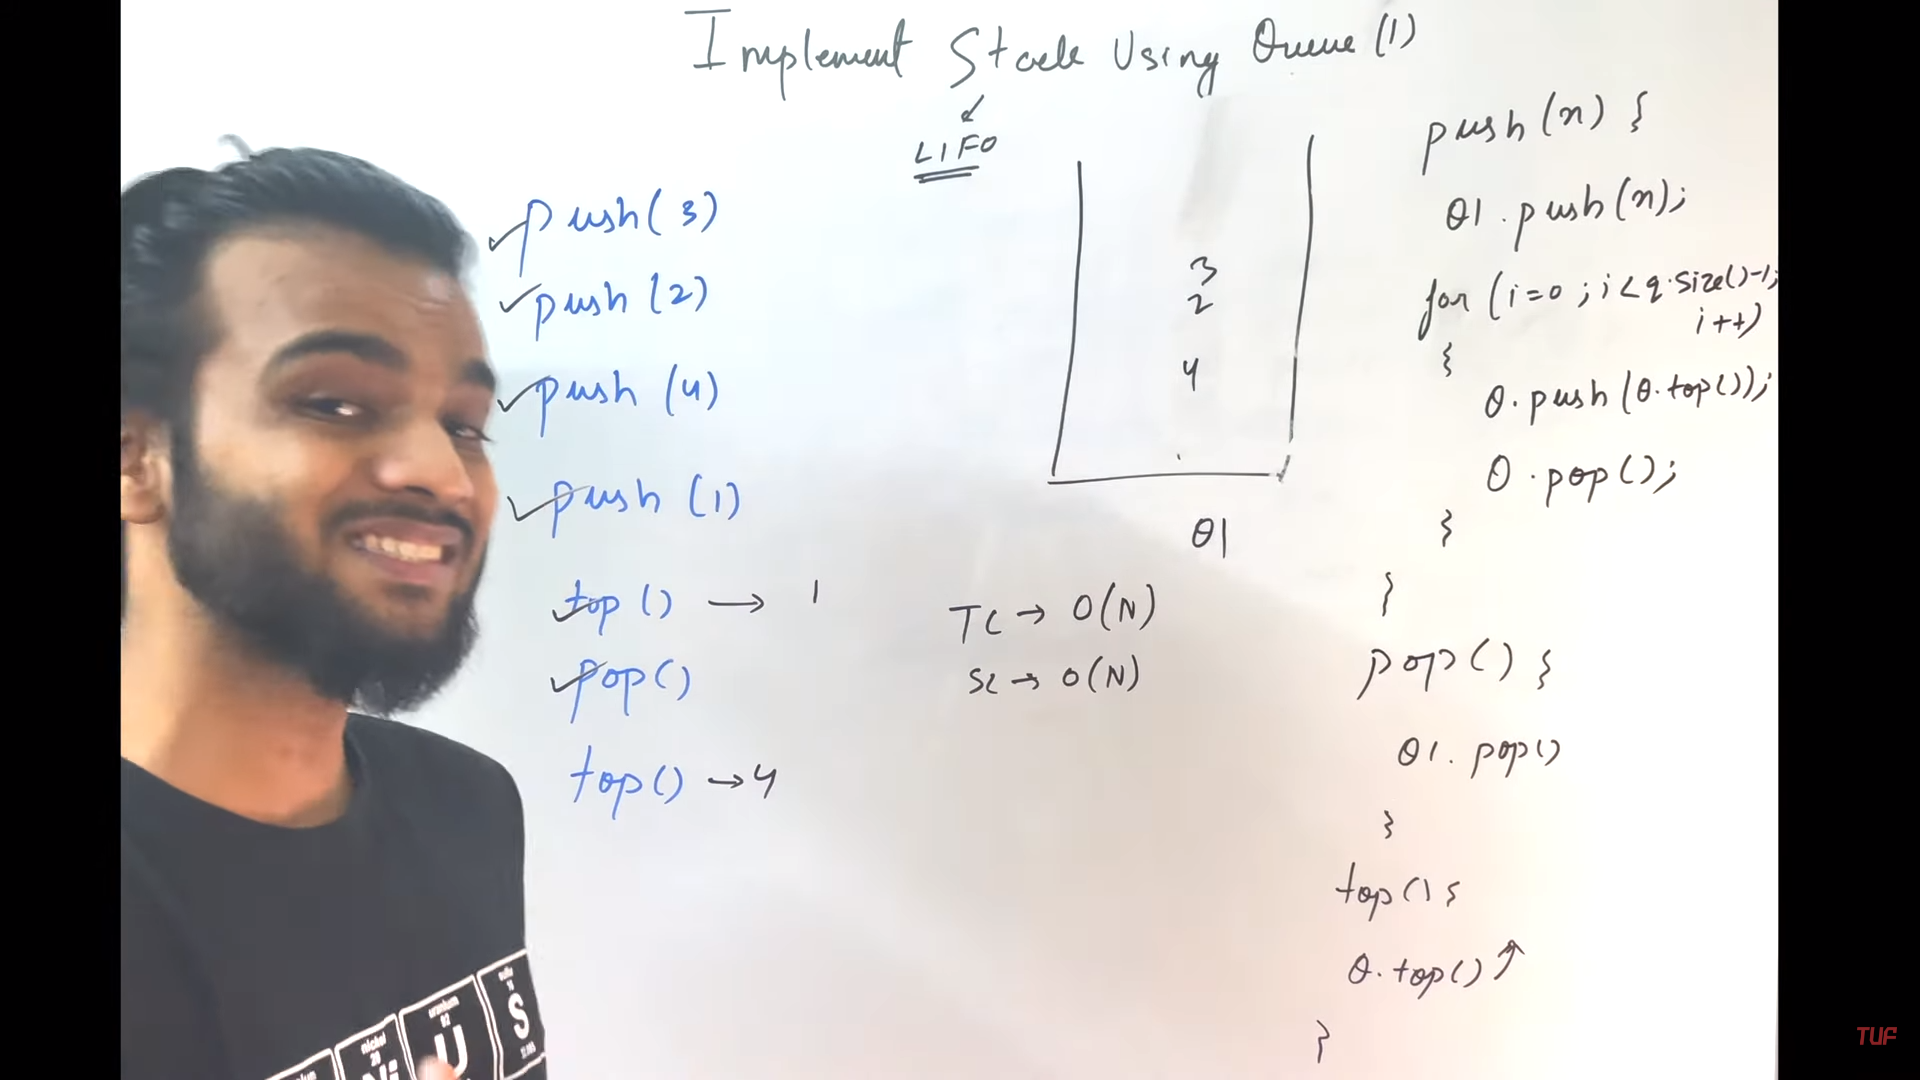 Implement Stack Using Queue (1)
LIFO
push(3)
push(2)
push(4)
push(1)
top() → 1
pop()
top() → 4
3
2
4
Q1
TC → O(N)
SC → O(N)
push(x) {
Q1.push(x);
for (i=0 ; i<q.size()-1;
i++)
{
Q.push(Q.top());
Q.pop();
}
}
pop() {
Q1.pop()
}
top() {
Q.top()
}
nickel
28
Ni
uranium
92
U
S
TUF